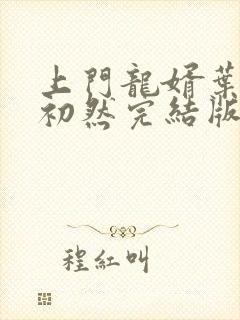 上門龍婿葉
初然完結版
程紅叫